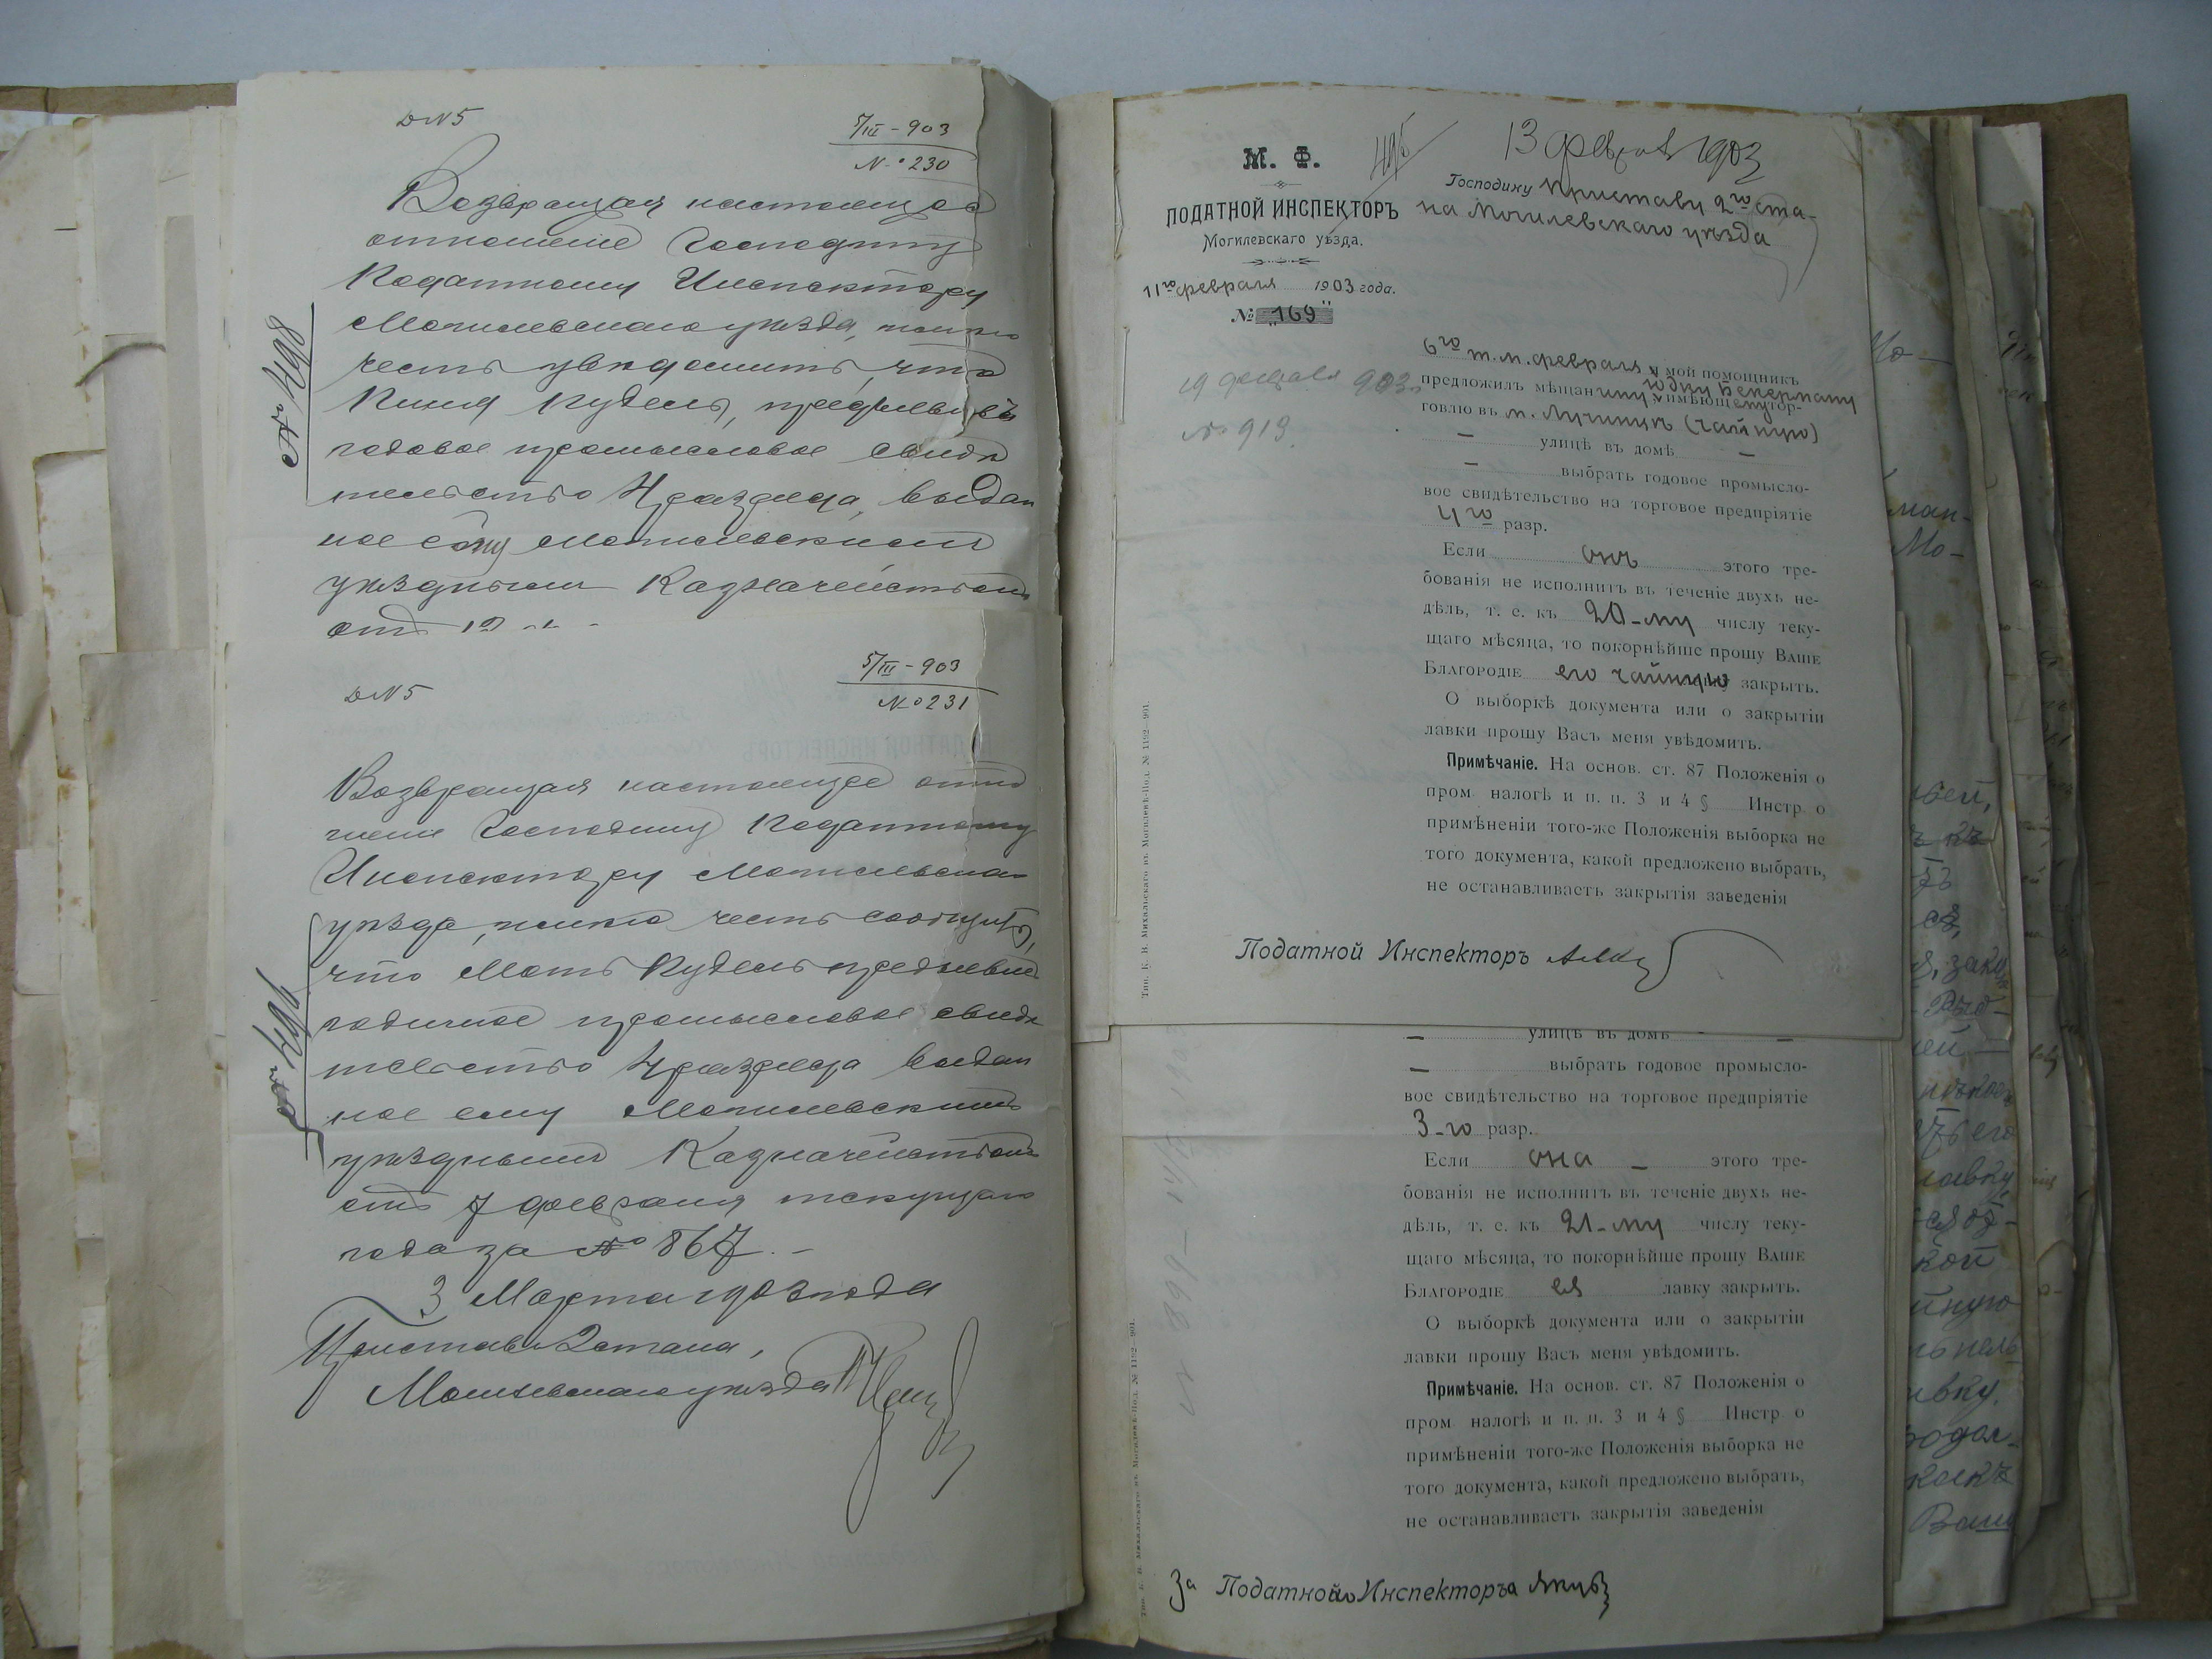 DN5
5/III - 903
N.o 230
Возвращая настоящее
отношеніе Господину
Податному Инспектору
Могилевскаго уѣзда, имѣю
честь увѣдомить, что
Кудель, предъявилъ
годовое промысловое свидѣ
тельство 4 разряда, выдан
ное ему Могилевскимъ
уѣзднымъ Казначействомъ
отъ
№ 498
DN5
5/III - 903
N.o 231
Возвращая настоящее отно
шеніе Господину Податному
Инспектору Могилевскаго
уѣзда, имѣю честь сообщить,
что Кудель предъявилъ
годичное промысловое свидѣ
тельство 4 разряда выдан
ное ему Могилевскимъ
уѣзднымъ Казначействомъ
отъ 7 февраля текущаго
года за № 867. -
3 Марта 1903 года
Приставъ 2 стана,
Могилевскаго уѣзда
М. Ф.
ПОДАТНОЙ ИНСПЕКТОРЪ
Могилевскаго уѣзда.
11го февраля 1903 года.
№ "169"
19 февраля 903
№ 913.
13 февраля 1903
Господину Приставу 2го ста-
на Могилевскаго уѣзда
6го т.м. февраля мой помощникъ
предложилъ мѣщанину имѣющему тор-
говлю въ м. (чайную)
— улицѣ въ домѣ —
— выбрать годовое промысло-
вое свидѣтельство на торговое предпріятіе
4го разр.
Если онъ этого тре-
бованія не исполнитъ въ теченіе двухъ не-
дѣль, т. е. къ 20-му числу теку-
щаго мѣсяца, то покорнѣйше прошу ВАШЕ
БЛАГОРОДІЕ его чайную закрыть.
О выборкѣ документа или о закрытіи
лавки прошу Васъ меня увѣдомить.
Примѣчаніе. На основ. ст. 87 Положенія о
пром налогѣ и п. п. 3 и 4 § Инстр о
примѣненіи того-же Положенія выборка не
того документа, какой предложено выбрать,
не останавливаетъ закрытія заведенія
Податной Инспекторъ
Тип. К. Н. Михальскаго въ Могилевѣ-Под. № 1192—901.
— улицѣ въ домѣ —
— выбрать годовое промысло-
вое свидѣтельство на торговое предпріятіе
3-го разр.
Если она — этого тре-
бованія не исполнитъ въ теченіе двухъ не-
дѣль, т. е. къ 21-му числу теку-
щаго мѣсяца, то покорнѣйше прошу ВАШЕ
БЛАГОРОДІЕ ея лавку закрыть.
О выборкѣ документа или о закрытіи
лавки прошу Васъ меня увѣдомить.
Примѣчаніе. На основ. ст. 87 Положенія о
пром налогѣ и п. п. 3 и 4 § Инстр о
примѣненіи того-же Положенія выборка не
того документа, какой предложено выбрать,
не останавливаетъ закрытія заведенія
За Податного Инспектора
Тип. К. Н. Михальскаго въ Могилевѣ-Под. № 1192—901.